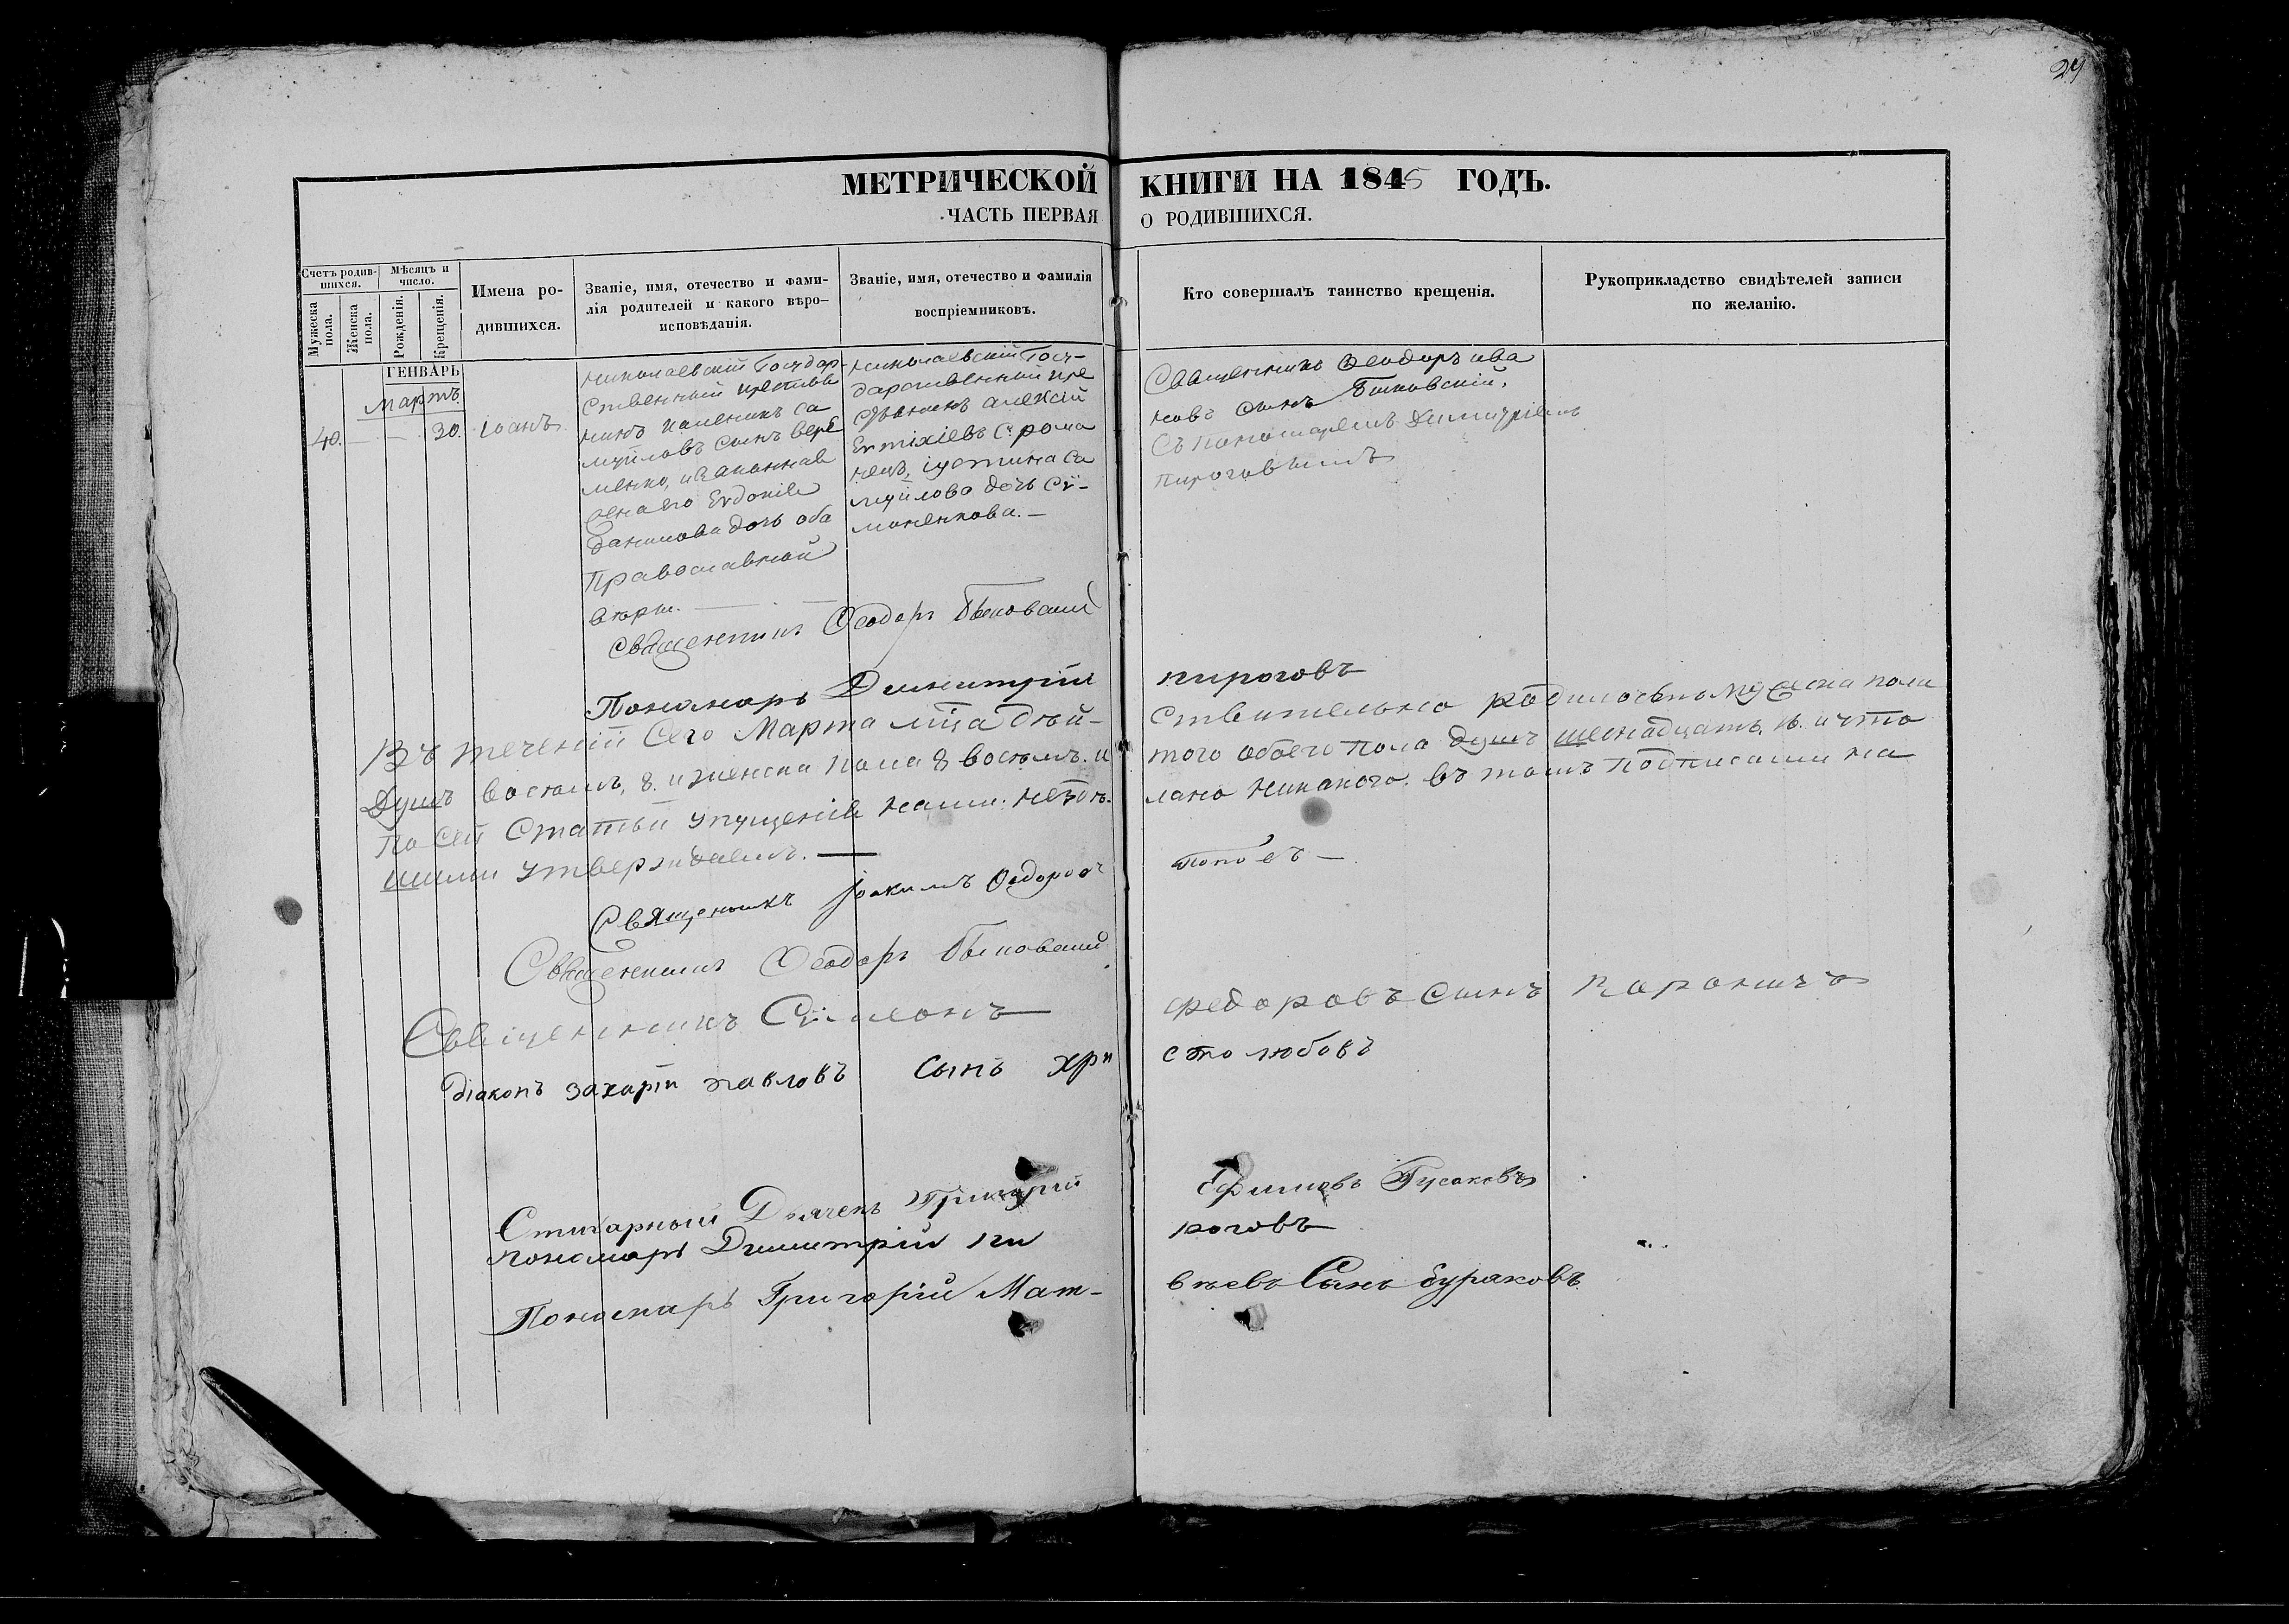 29
МЕТРИЧЕСКОЙ КНИГИ НА 1845 ГОДЪ.
ЧАСТЬ ПЕРВАЯ О РОДИВШИХСЯ.
Счетъ родив-
шихся.
Мужеска пола.
Женска пола.
Мѣсяцъ и
число.
Рожденія.
Крещенія.
Имена ро-
дившихся.
Званіе, имя, отечество и фами-
лія родителей и какого вѣро-
исповѣданія.
Званіе, имя, отечество и фамилія
воспріемниковъ.
Кто совершалъ таинство крещенія.
Рукоприкладство свидѣтелей записи
по желанію.
ГЕНВАРЬ
Мартъ
40. — — 30. Іоанъ
Николаевскій Государ-
ственный крестья
нинъ
муйловъ сынъ Вере
менко, и законная
жена его Евдокія
Данилова дочь оба
Православной
вѣры.
Николаевскій Госу-
дарственный кре
стьянинъ Алексій
Евтихіевъ с. Рома
нецъ, Іустина Са
муйлова дочь Си-
моненкова. —
Священникъ Ѳеодоръ Ива
новъ сынъ Быковскій,
съ пономаремъ Димитріемъ
Пироговымъ
Священникъ Ѳеодоръ Быковскій
Пономарь Димитрій Пироговъ
Въ теченіи сего Марта м͠ца дѣй-ствительно родилось мужеска пола
душъ восемь, 8. и женска пола 8 восемь. и того обоего пола душъ шеснадцать, 16. и что
по сей статьи упущенія нами нездѣ-лано никакого. въ томъ подписами на
шими утверждаемъ. —
Священникъ Іоакимъ Ѳедоров Поповъ —
Священникъ Ѳеодоръ Быковскій
Священникъ Симеонъ Федоровъ сынъ
Діаконъ Захарій Павловъ сынъ Христолюбовъ
Стихарный Дьячекъ Григорій Ефимовъ Гусаковъ
Пономарь Димитрій Пироговъ
Пономарь Григорій Мат-вѣевъ Сынъ Бураковъ